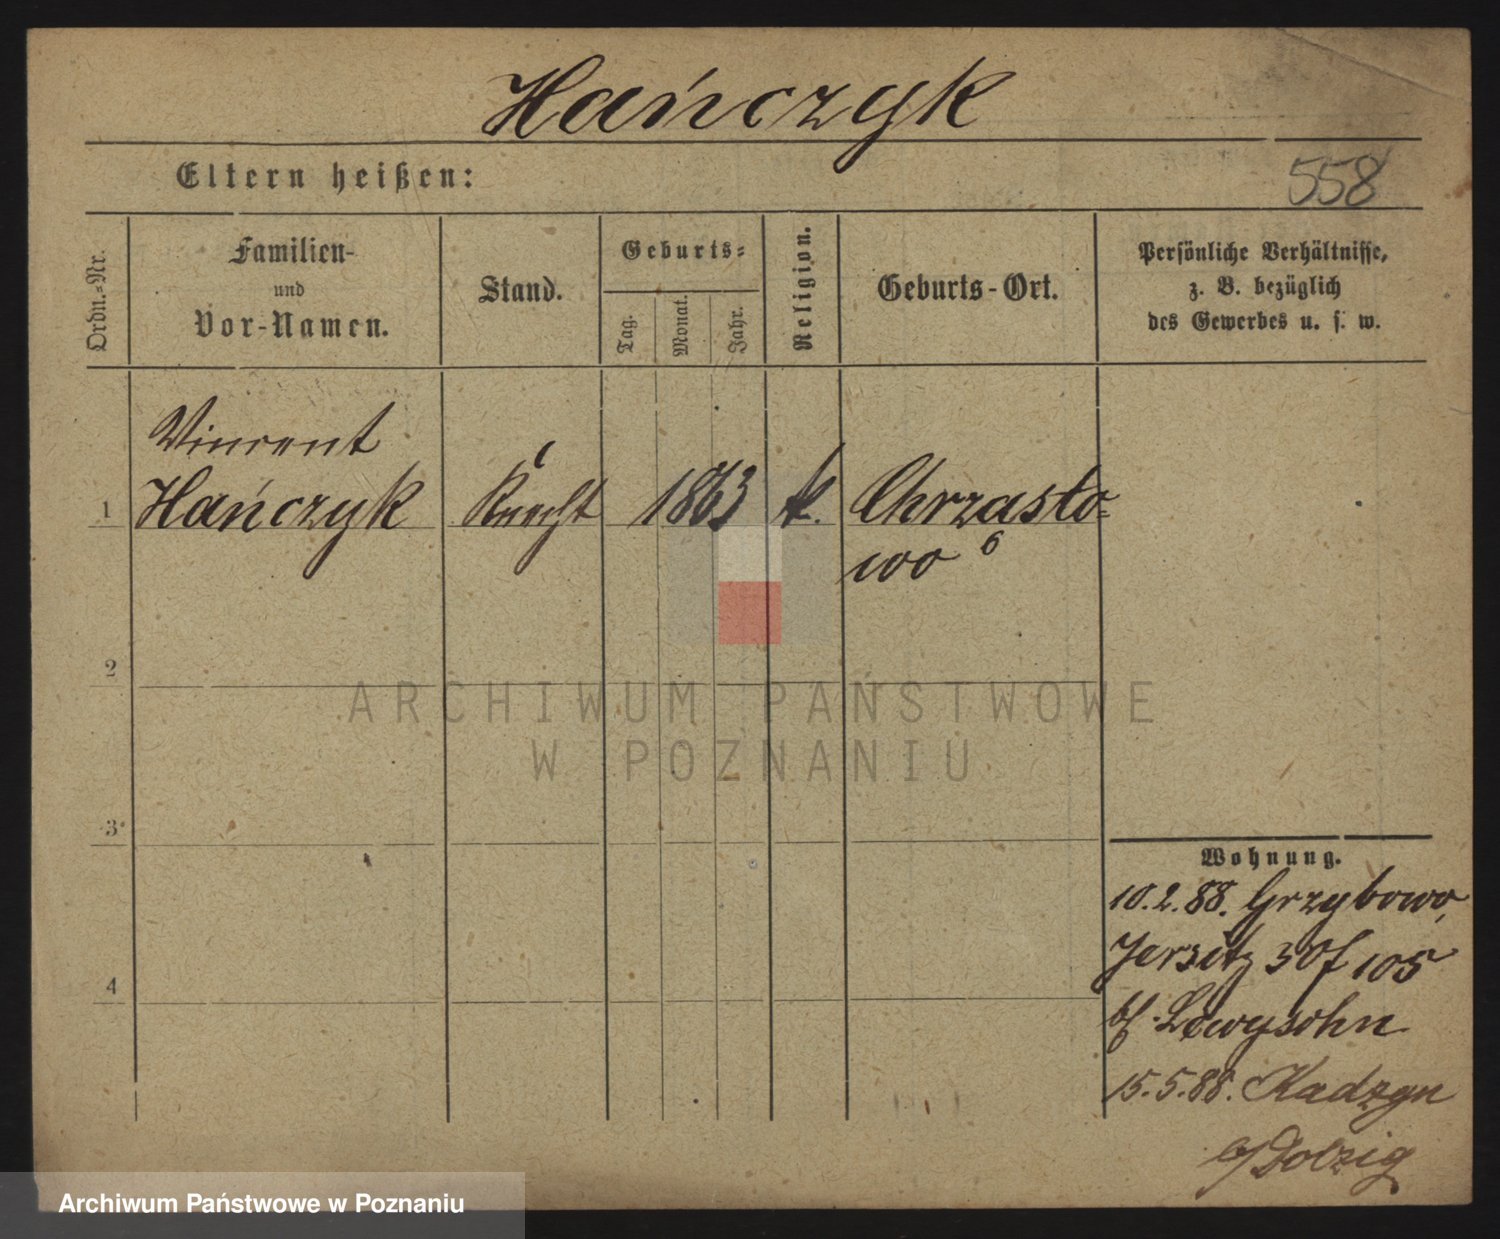 Hańczyk
Eltern heißen:
558
Ordn.-Nr.
Familien-
und
Vor-Namen.
Stand.
Geburts-
Tag.
Monat.
Jahr.
Religion.
Geburts-Ort.
Persönliche Verhältnisse,
z. B. bezüglich
des Gewerbes u. s. w.
Vincent
1 Hańczyk Knecht 1863 k. Chrzasto-
wo 6
2
ARCHIWUM PAŃSTWOWE
W POZNANIU
3
Wohnung.
10.2.88. Grzybowo,
4
Jersitz 30f 105
bf. Lewysohn
15.5.88. Kadzyn
b/Dolzig
Archiwum Państwowe w Poznaniu